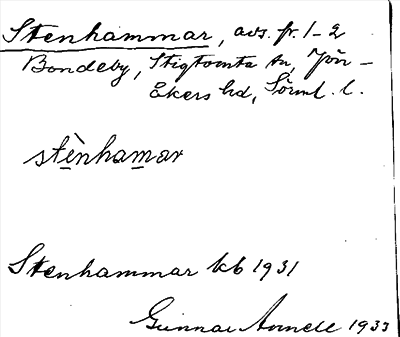 Stenhammar, avs. fr. 1-2
Bondeby, Stigtomta sn, Jön-
åkers hd, Sörml. l.
stènhamar
Stenhammar kb 1931
Gunnar Annell 1933